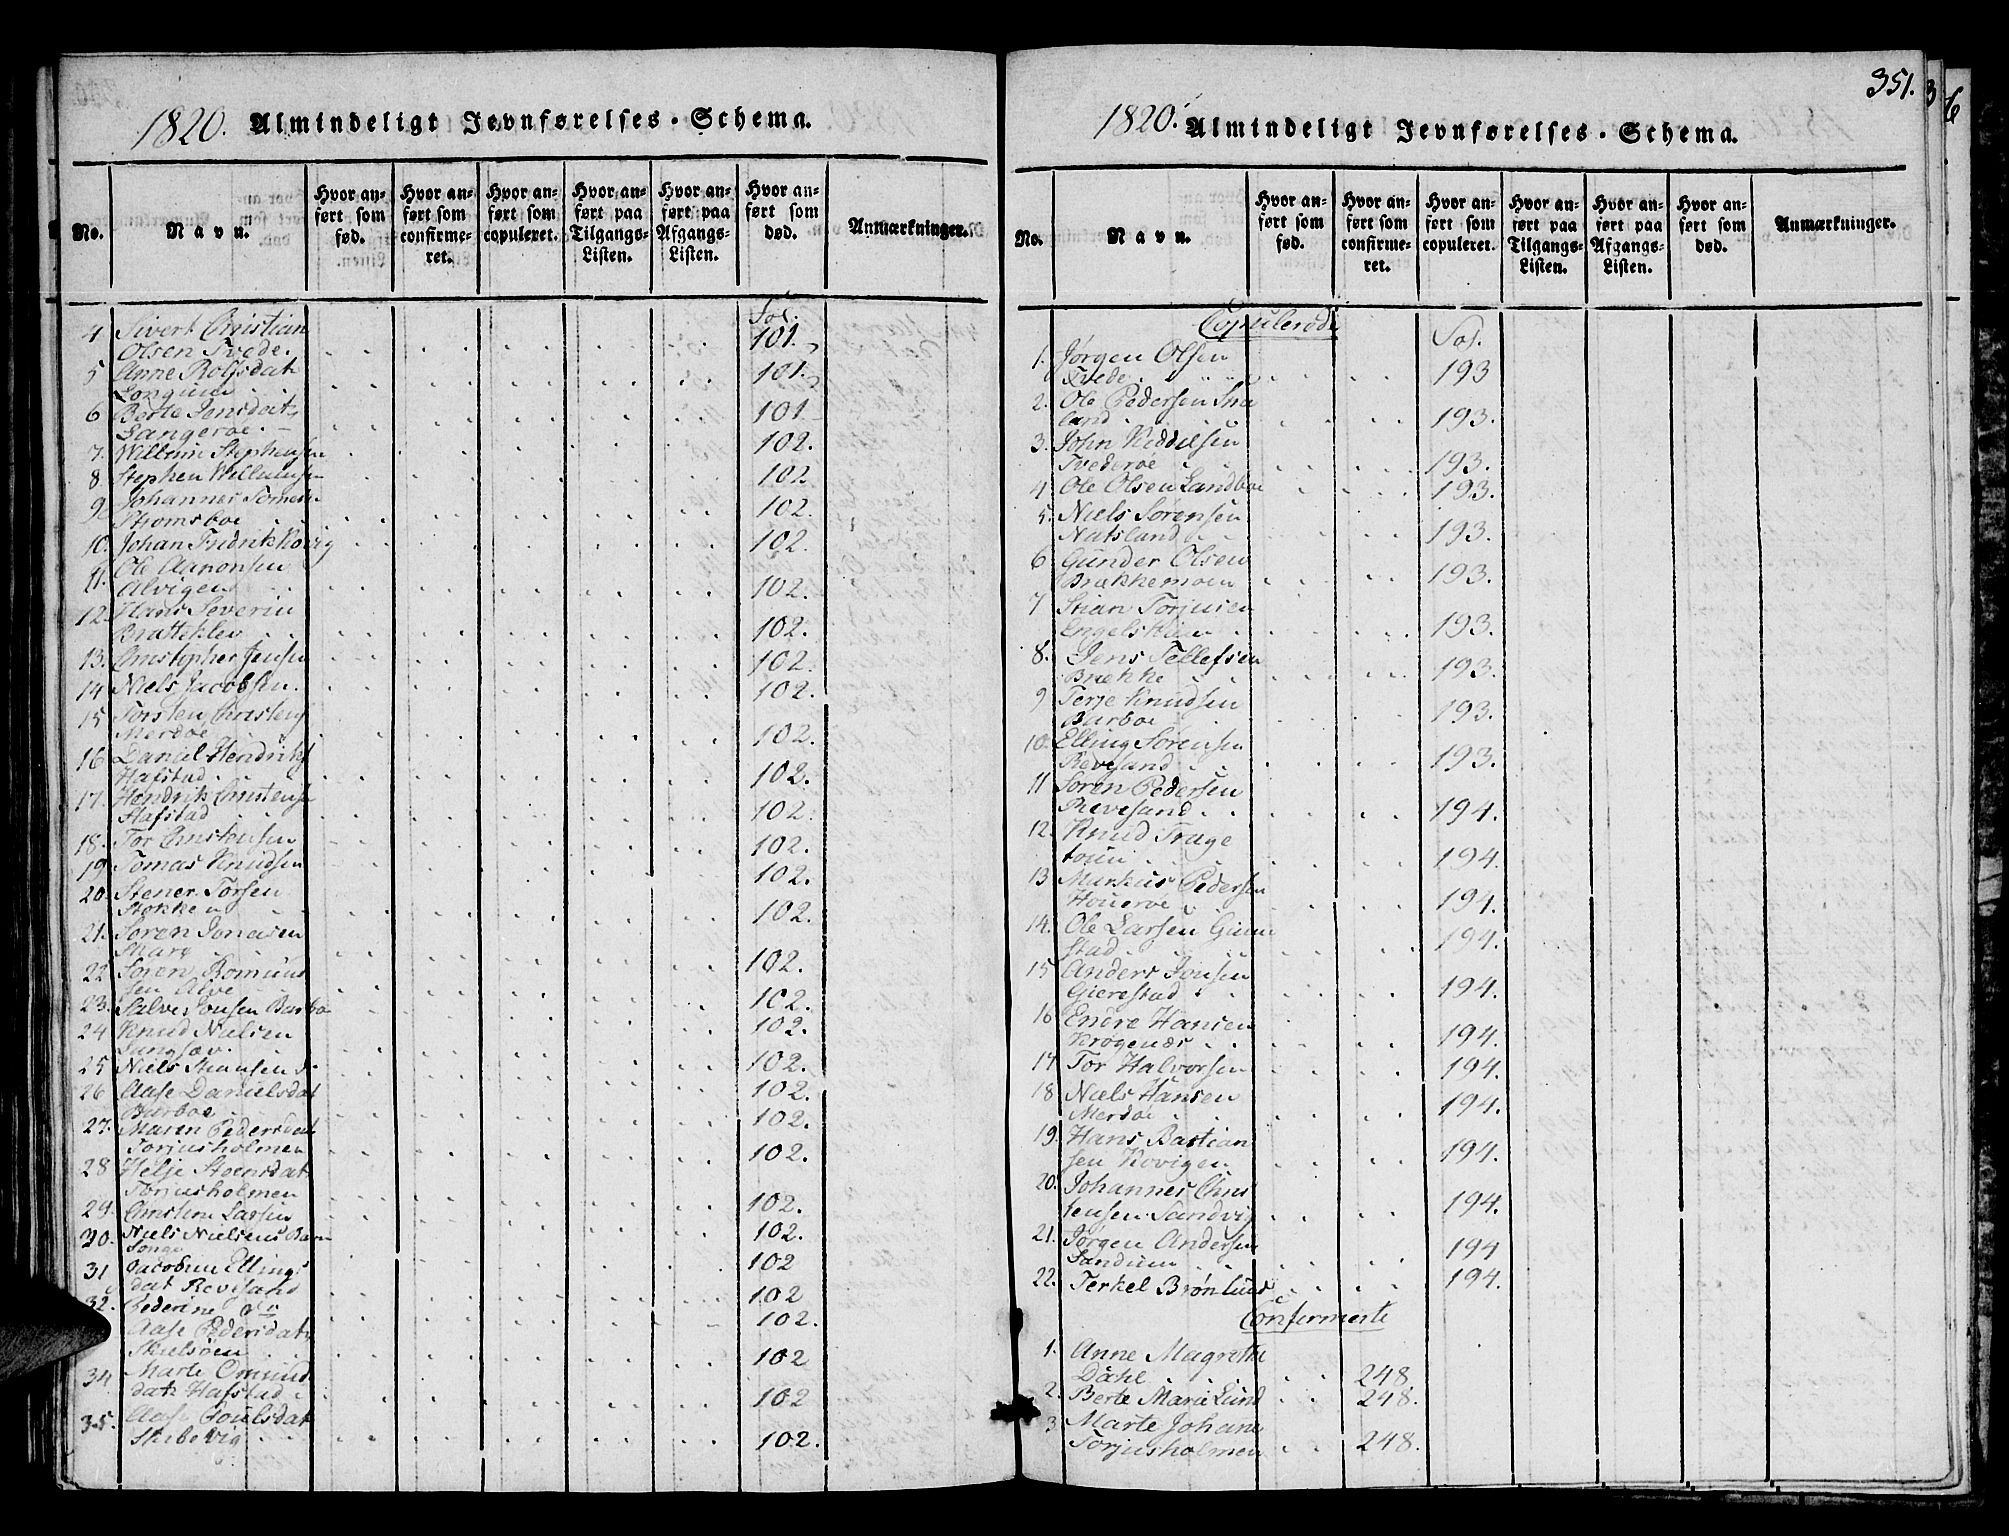 1820. Almindeligt Jevnførelses-Schema.
No. Navn. Hvor anført som fød. Hvor anført som confirmeret. Hvor anført som copuleret. Hvor anført paa Tilgangs-Listen. Hvor anført paa Afgangs-Listen. Hvor anført som død. Anmærkninger.
Fol.
4 Sivert Christian
Olsen Tvede. 101.
5 Anne Rolfsdat
Longum 101.
6 Berte Jensdat
Langeroe. 101
7. Willum Stephensen 102.
8 Stephen Willumsen 102
9. Johannes
Strømsboe 102.
10. Johan Fridrik Kovig 102.
11. Ole Aanonsen
Alvigen 102.
12. Hans Severin
Bratteklev 102.
13. Christopher Jensen 102.
14 Niels Jacobsen. 102.
15 Torsten Christens
Merdøe 102.
16 Daniel Hendriks
Hafstad 102.
17. Hendrik Christense
Hafstad 102.
18. Tor Christensen 102.
19 Tomas Knudsen 102.
20. Stener Torsen
Stokken 102.
21. Søren Jonasen
102.
22 Søren Romund
sen Alve 102.
23. Salve Jonsen Barbo 102.
24 Knud Nielsen
Langsæv. 102.
25 Niels 102.
26 Aase Danielsdat
Barboe 102.
27. Maren Pedersdat
Torjusholmen 102.
28 Helje Steensdat
Torjusholmen 102.
29. Christen Larsen 102.
30. Niels Nielsens Barn
Songe 102
31 Jacobine Ellings
dat Revesand 102
32. Pederine 102.
Aase Pedersdat
Skielsøen 102
34 Marte Omund
dat Hafstad 102
35. Aase Poulsdat
Skibevig 102.
351.
1820. Almindeligt Jevnførelses-Schema.
No. Navn. Hvor anført som fød. Hvor anført som confirmeret. Hvor anført som copuleret. Hvor anført paa Tilgangs-Listen. Hvor anført paa Afgangs-Listen. Hvor anført som død. Anmærkninger.
Copulerede
Fol.
1. Jørgen Olsen
Tvede 193
2. Ole Pedersen
land 193.
3. John Kiddelsen
Tvederøe 193.
4 Ole Olsen Landboe 193.
5. Niels Sørensen
Natsland 193.
6 Gunder Olsen
Brækkemoen 193.
7 Stian Torjusen
Engelskien 193.
8. Jens Tellefsen
Brække 193.
9 Terje Knudsen
Barboe 193.
10. Elling Sørensen
Revesand 193.
11 Søren Pedersen
Revesand 194.
12. Knud Trage
toun 194.
13 Markus Pedersen
Houerøe 194.
14. Ole Larsen Gunn
stad 194.
15 Anders Jonsen
Gierestad 194.
16 Endre Hansen
Krøgenæs 194.
17 Tor Halvorsen 194.
18 Niels Hansen
Merdøe 194.
19. Hans Bastian
sen Kovigen 194.
20. Johannes Chris
tensen Sandvig 194.
21. Jørgen Andersen
Sandum 194
22. Terkel Brønlund 194.
Confermerte
1. Anne Magrethe
Dahl 248
2. Berte Marie Lund 248.
3 Marte Johane
Torjusholmen 248.